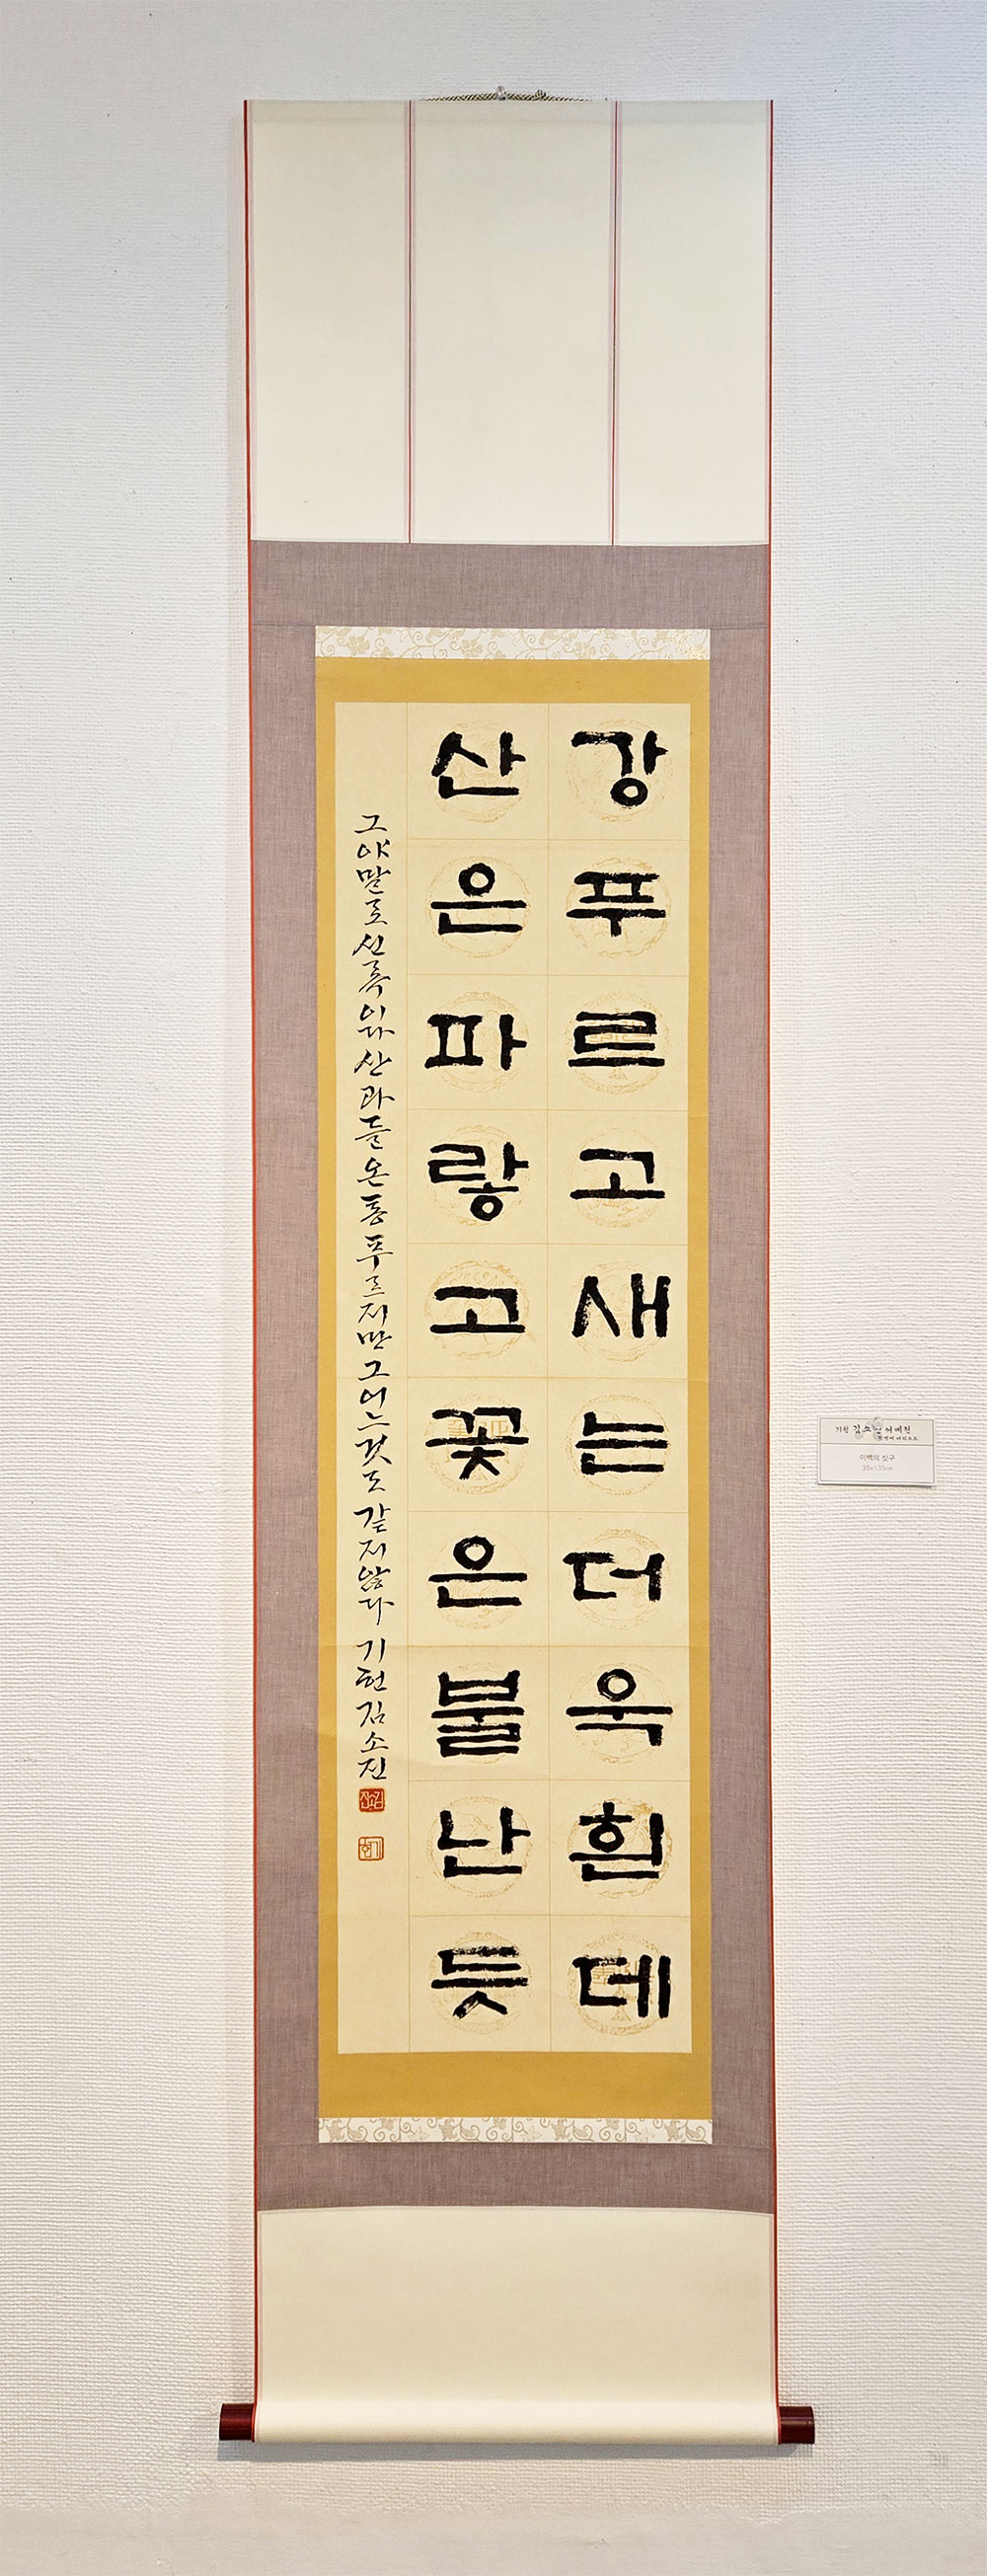 강푸르고새는더욱흰데
산은파랗고꽃은불난듯
그야말로 신록이다 산과 들 온통 푸르지만 그 어느 것도 같지 않다 기헌 김소진
이백의 싯구
35x135cm